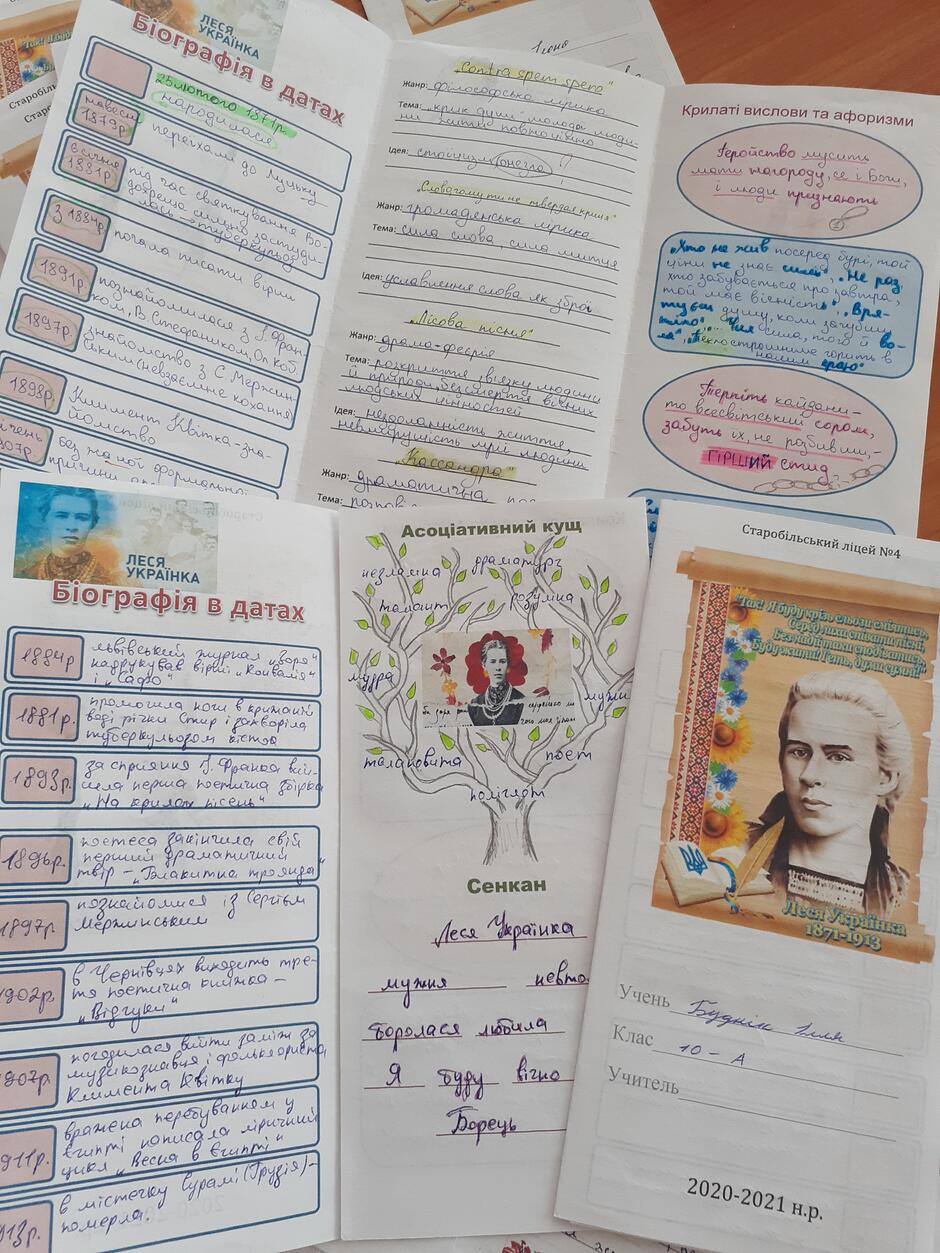 ЛЕСЯ
УКРАЇНКА
Біографія в датах
25 лютого 1871р.
народилася
навесні
1879р
переїхали до Луцьку
з січня
1881р.
під час святкування Во-
дохреща сильно застуди-
лась → туберкульоз
З 1884р
почала писати вірші
1891р
познайомилася з І. Фран-
ком, В. Стефаником, О. Коб.
1897р.
знайомство з С. Мержин-
ським (невзаємне кохання)
1898р.
Климент Квітка - зна-
йомство
907р.
без жодної формальної
причини
"Contra spem spero"
Жанр: філософська лірика
Тема: крик душі молодої люди-
ни жити повноцінно
Ідея: стоїцизм
"Слово, чому ти не твердая криця"
Жанр: громадянська лірика
Тема: сила слова, сила митця
Ідея: уславлення слова як зброї
"Лісова пісня"
Жанр: драма-феєрія
Тема: розкриття зв'язку людини
й природи, безсмертя вічних
людських цінностей
Ідея: нездоланність життя,
невмирущість мрії людини
"Кассандра"
Жанр: драматична
Тема: розпов
Крилаті вислови та афоризми
Геройство мусить
мати нагороду, се і Боги,
і люди признають
"Хто не жив посеред бурі, той
ціни не знає силі", "Не раз
хто забувається про завтра,
той має вічність", "Вря-
туєш душу, коли загубиш
тіло". "Чия сила, того й во-
ля",
горить в
краю"
Терпіть кайдани -
то всесвітський сором,
забуть їх, не розбивши, -
гірший стид
ЛЕСЯ
УКРАЇНКА
Біографія в датах
1884р
львівський журнал "Зоря"
надрукував вірші "Конвалія"
і "Сафо"
1881р.
промочила ноги в крижаній
воді річки Стир і захворіла
туберкульозом кісток
1893р.
за сприяння І. Франка вий-
шла перша поетична збірка
"На крилах пісень"
1896р.
поетеса закінчила свій
перший драматичний
твір - "Блакитна троянда"
1897р.
познайомися із Сергієм
Мержинським
1902р.
в Чернівцях виходить тре-
тя поетична книжка -
"Відгуки"
907р.
погодилася вийти заміж за
музикознавця і фольклориста
Климента Квітку
911р.
вражена перебуванням у
Єгипті написала ліричний
цикл "Весна в Єгипті"
913р.
в містечку Сурамі (Грузія) -
померла.
Асоціативний кущ
незламна
драматург
талант
розумна
мудра
мужн
талановита
поет
поліглот
Сенкан
Леся Українка
мужня невто
боролася любила
Я буду вічно
Борець
Старобільський ліцей №4
"Так! Я буду крізь сльози сміятись,
Серед лиха співати пісні,
Без надії таки сподіватись,
Буду жити! Геть, думи сумні!"
Леся Українка
1871-1913
Учень Будік Ілля
Клас 10 - А
Учитель
2020-2021 н.р.